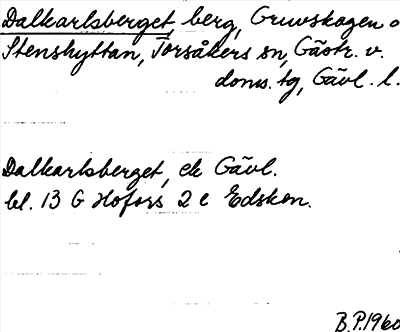 Dalkarlsberget, berg, Gruvskogen o
Stenshyttan, Torsåkers sn, Gästr. v.
doms. tg, Gävl. l.
Dalkarlsberget, ek Gävl.
bl. 13 G Hofors 2 e Edsken.
B.P. 1960